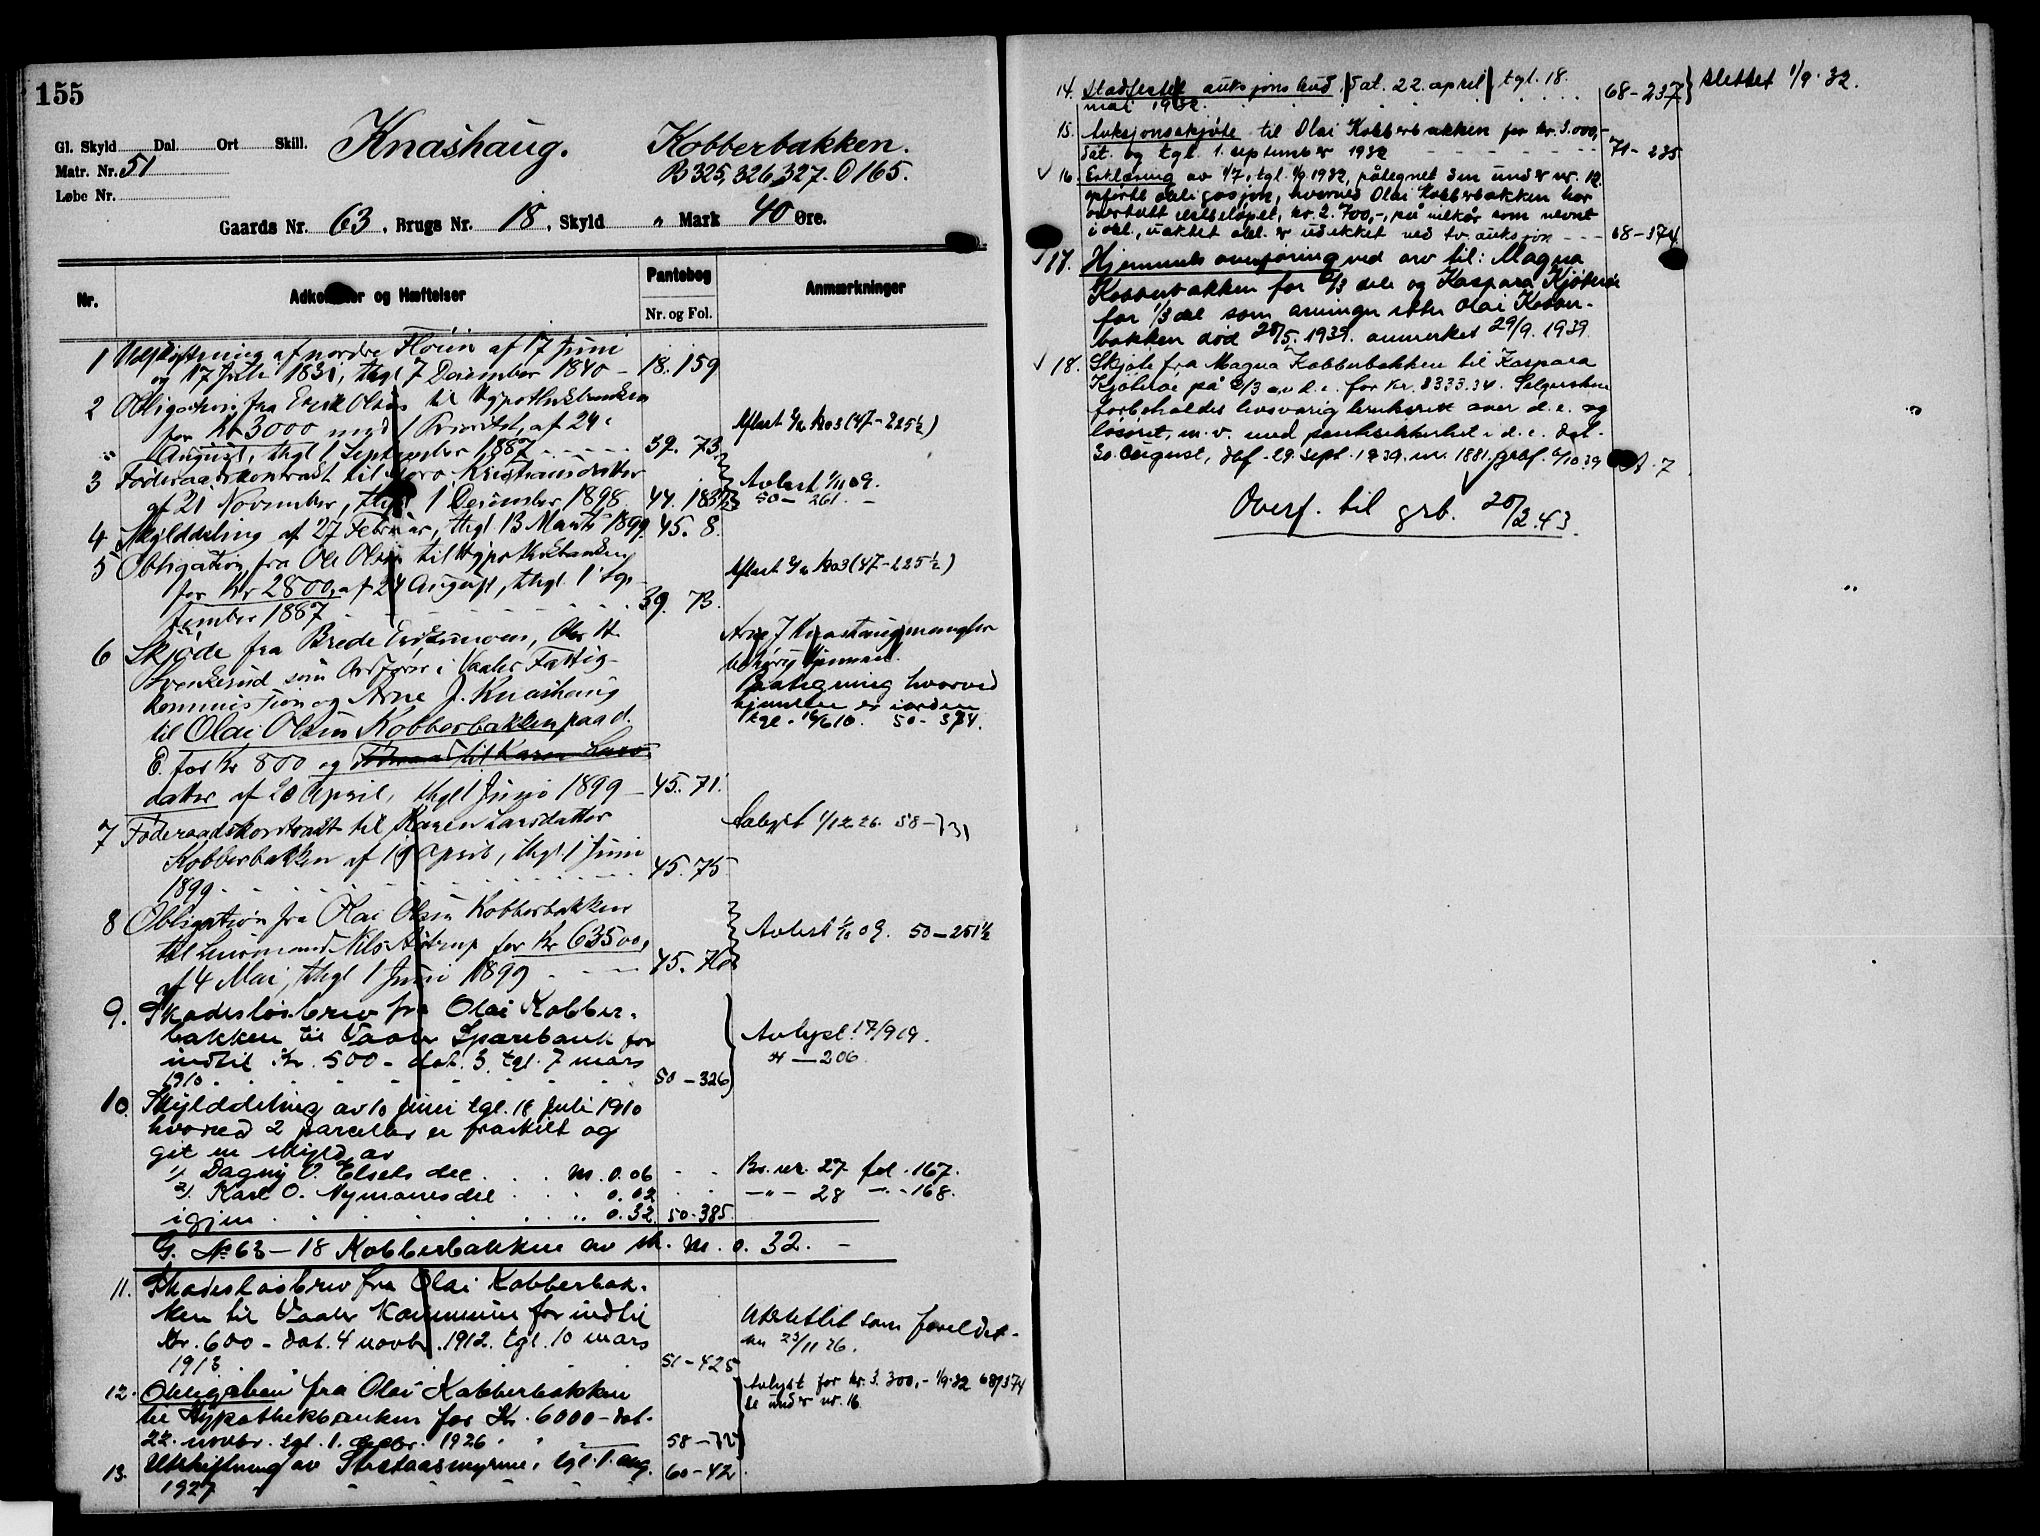 155
Gl. Skyld Dal. Ort Skill.
Knashaug. Kobberbakken.
Matr. Nr. 51
B 325, 326, 327. O 165.
Løbe Nr.
Gaards Nr. 63, Brugs Nr. 18, Skyld " Mark 40 Øre.
Nr. Adkomster og Hæftelser Pantebog Nr. og Fol. Anmærkninger
1 Udskiftning af nordre Florin af 17 Juni
og 17 Juli 1831, thgl 7 December 1840 - 18. 159
2 Obligation fra Erik Olsen til Hypothekbanken
for Kr 3000 med 1 Prioritet, af 24
August, thgl 1 September 1887 39. 73.
Aflæst 1903 (47-225½)
3 Føderaadskontrakt til Kristiansdatter
af 21 November, thgl 1 December 1898 44. 183
Avlæst 1/11 09.
50 - 261. -
4 Skylddeling af 27 Februar, thgl 13 Marts 1899. 45. 8.
5 Obligation fra Ole Olsen til Hypothekbanken
for Kr 2800, af 24 August, thgl. 1 Sep-
tember 1887 39. 73.
Aflæst 1903 (47-225½)
6 Skjøde fra Brede Eriksmoen, Ole H.
Svenkerud som Ordfører i Vaaler Fattig-
kommission og Arne J. Knashaug
til Olai Olsen Kobberbakken paa d.
E. for Kr 800 og Føderaad til Karen Lars-
datter af 20 April, thgl 1 Juni 1899 - 45. 71.
Arne J Knashaug mangler
behørig Hjemmel.
Paategning hvorved
hjemmelen er i orden
tgl. 16/6 10. 50 - 374.
7 Føderaadskontrakt til Karen Larsdatter
Kobberbakken af 19 April, thgl. 1 Juni
1899. 45. 75
Avlyst 1/12 26. 58 - 731
8 Obligation fra Olai Olsen Kobberbakken
til Lensmand Nils Astrup for Kr 635 00,
af 4 Mai, thgl 1 Juni 1899 45. 76
Avlæst 1/10 09. 50 - 251½
9. Skadesløsbrev fra Olai Kobber-
bakken til Vaaler Sparebank for
indtil Kr. 500 - dat. 3. tgl. 7 mars
1910. 50 - 326
Avlyst 17/9 19.
206
10. Skylddeling av 10 Juni tgl. 18 Juli 1910
hvorved 2 parceller er fraskilt og
git en skyld av
1/. Dagny O. Elsets del M. 0.06 Br. nr. 27 fol. 167.
2/. Karl O. Nymoens del 0.02 -"- 28 -"- 168.
igjen " 0.32. 50-385.
G. No 63 - 18 Kobberbakken av sk. M. 0. 32. -
11. Skadesløsbrev fra Olai Kobberbak-
ken til Vaaler Kommune for indtil
Kr. 600 - dat. 4 novbr. 1912. tgl. 10 mars
1913 51 - 425
Utslettet som foreldet.
23/11 26.
12. Obligation fra Olai Kobberbakken
til Hypothekbanken for Kr. 6000 - dat.
22. novbr. tgl. 1. decbr. 1926
Avlyst for kr. 3.300,- 1/9-32 68/374
se under nr. 16.
13. Utskiftning av tgl. 1. aug. 60 - 42.
1927
14. Stadfestet auksjonsbud, dat. 22. april tgl. 18.
mai 1932. 68 - 237 slettet 1/9-32.
15. Auksjonsskjøte til Olai Kobberbakken for kr. 3.000,-
dat. og tgl. 1. september 1932 71 - 235
16. Erklæring av 1/7, tgl. 1/9. 1932, påtegnet den under nr. 12
opførte obligasjon, hvorved Olai Kobberbakken har
overtatt restbeløpet, kr. 2.700,-, på vilkår som nevnt
i obl., uaktet obl. er udekket ved tv. auksjon - - - 68 - 374.
17. Hjemmelsoverføring ved arv til: Magna
Kobberbakken for 2/3 dele og Kaspara Kjølseie
for 1/3 del som arvinger etter Olai Kobber-
bakken død 28/5. 1939. anmerket 29/9. 1939.
18. Skjøte fra Magna Kobberbakken til Kaspara
Kjølseie på 2/3 av d. e. for Kr. 3333.34. Selgersken
forbeholdes livsvarig bruksrett over d. e. og
løsøret, m. v. med pantesikkerhet i d. e. dat.
30. august, dbf. 29. sept. 1939. nr. 1881. 10.39 A. 7
Overf. til grb. 20/2.43.